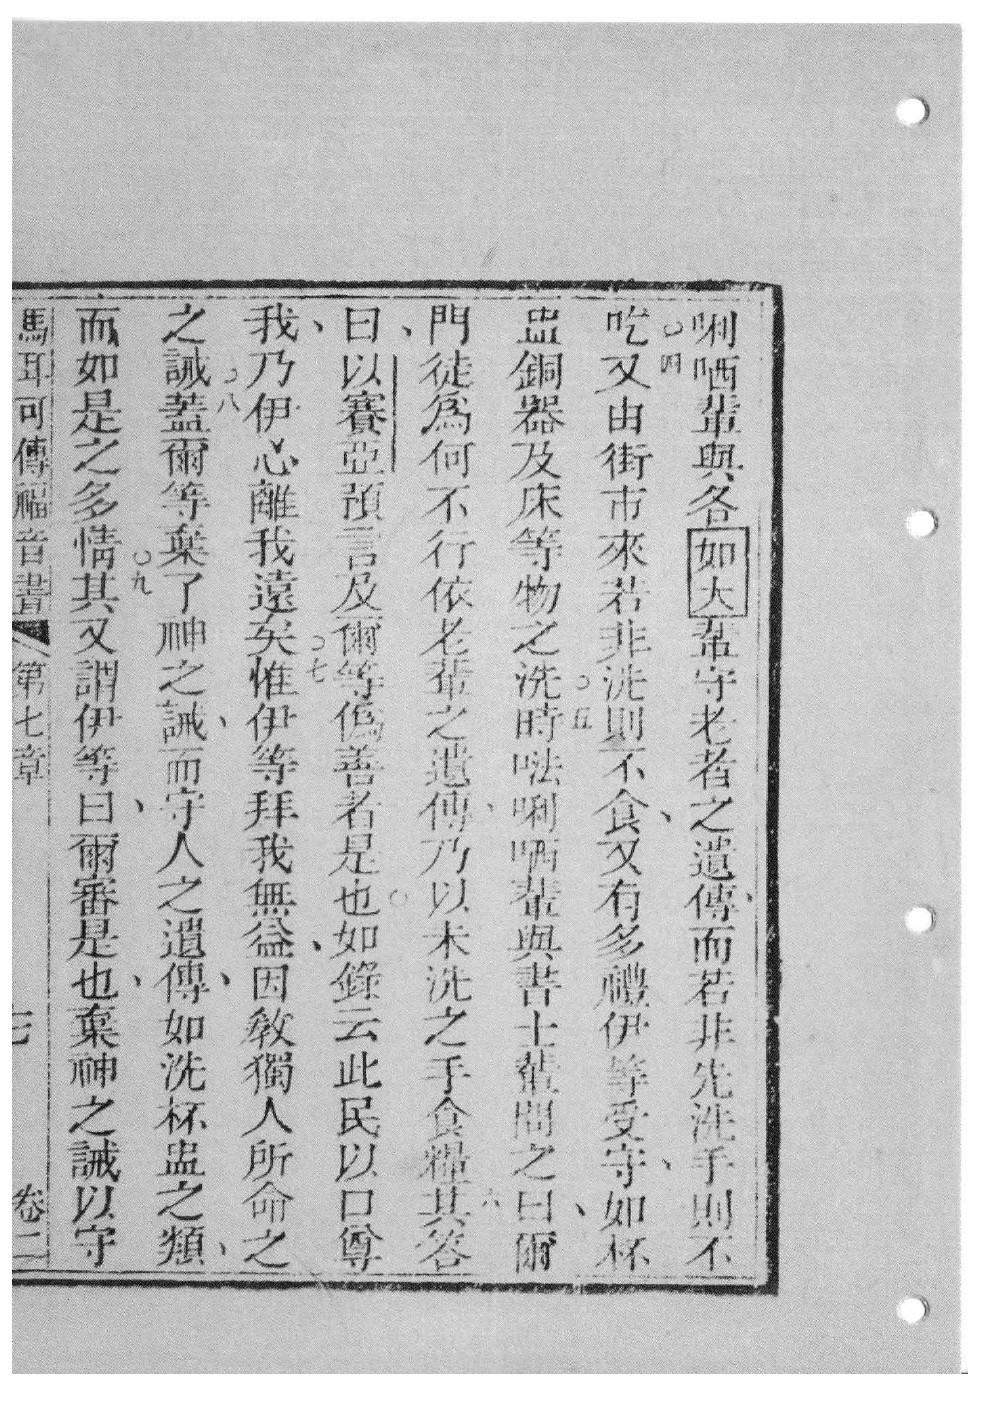 唎哂輩與各如大輩守老者之遺傳、而若非先洗手則不
吃○四又由街市來若非洗則不食、又有多禮伊等受守、如杯
盅銅器及床等物之洗○五時呿唎哂輩與書士輩問之曰、爾
門徒為何不行依老輩之遺傳、乃以未洗之手食糧○六其答
曰、以賽亞預言及爾等偽善者是也○如錄云此民以口尊
我、乃伊心離我遠矣○七惟伊等拜我無益、因教獨人所命之
之誡○八蓋爾等棄了神之誡、而守人之遺傳、如洗杯盅之類、
而如是之多情○九其又謂伊等曰、爾審是也、棄神之誡以守
馬耳可傳福音書 第七章 七 卷二